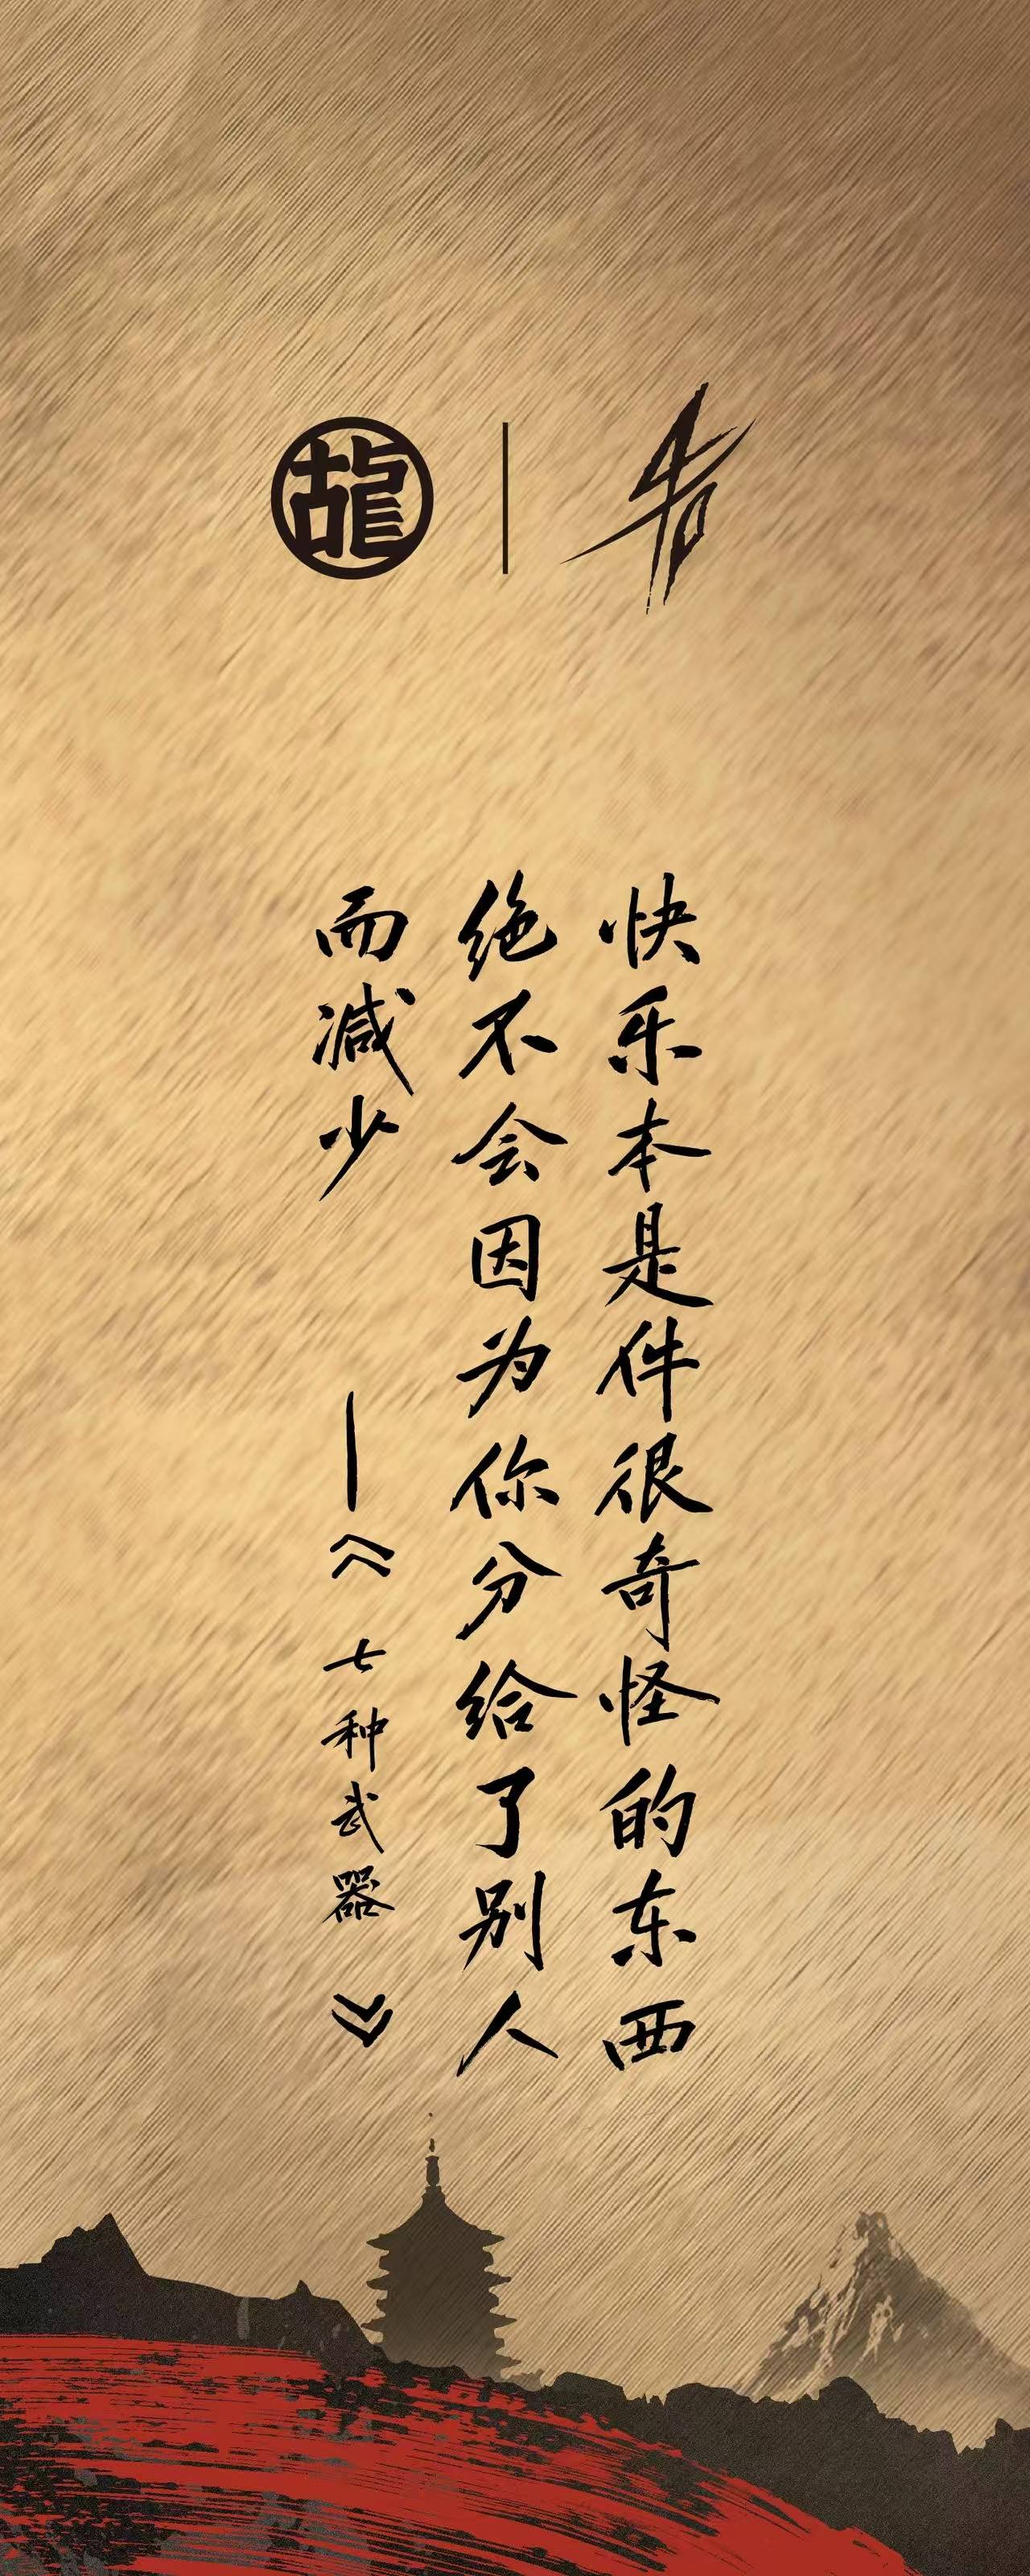 古龍
快乐本是件很奇怪的东西
绝不会因为你分给了别人
而减少
—《七种武器》